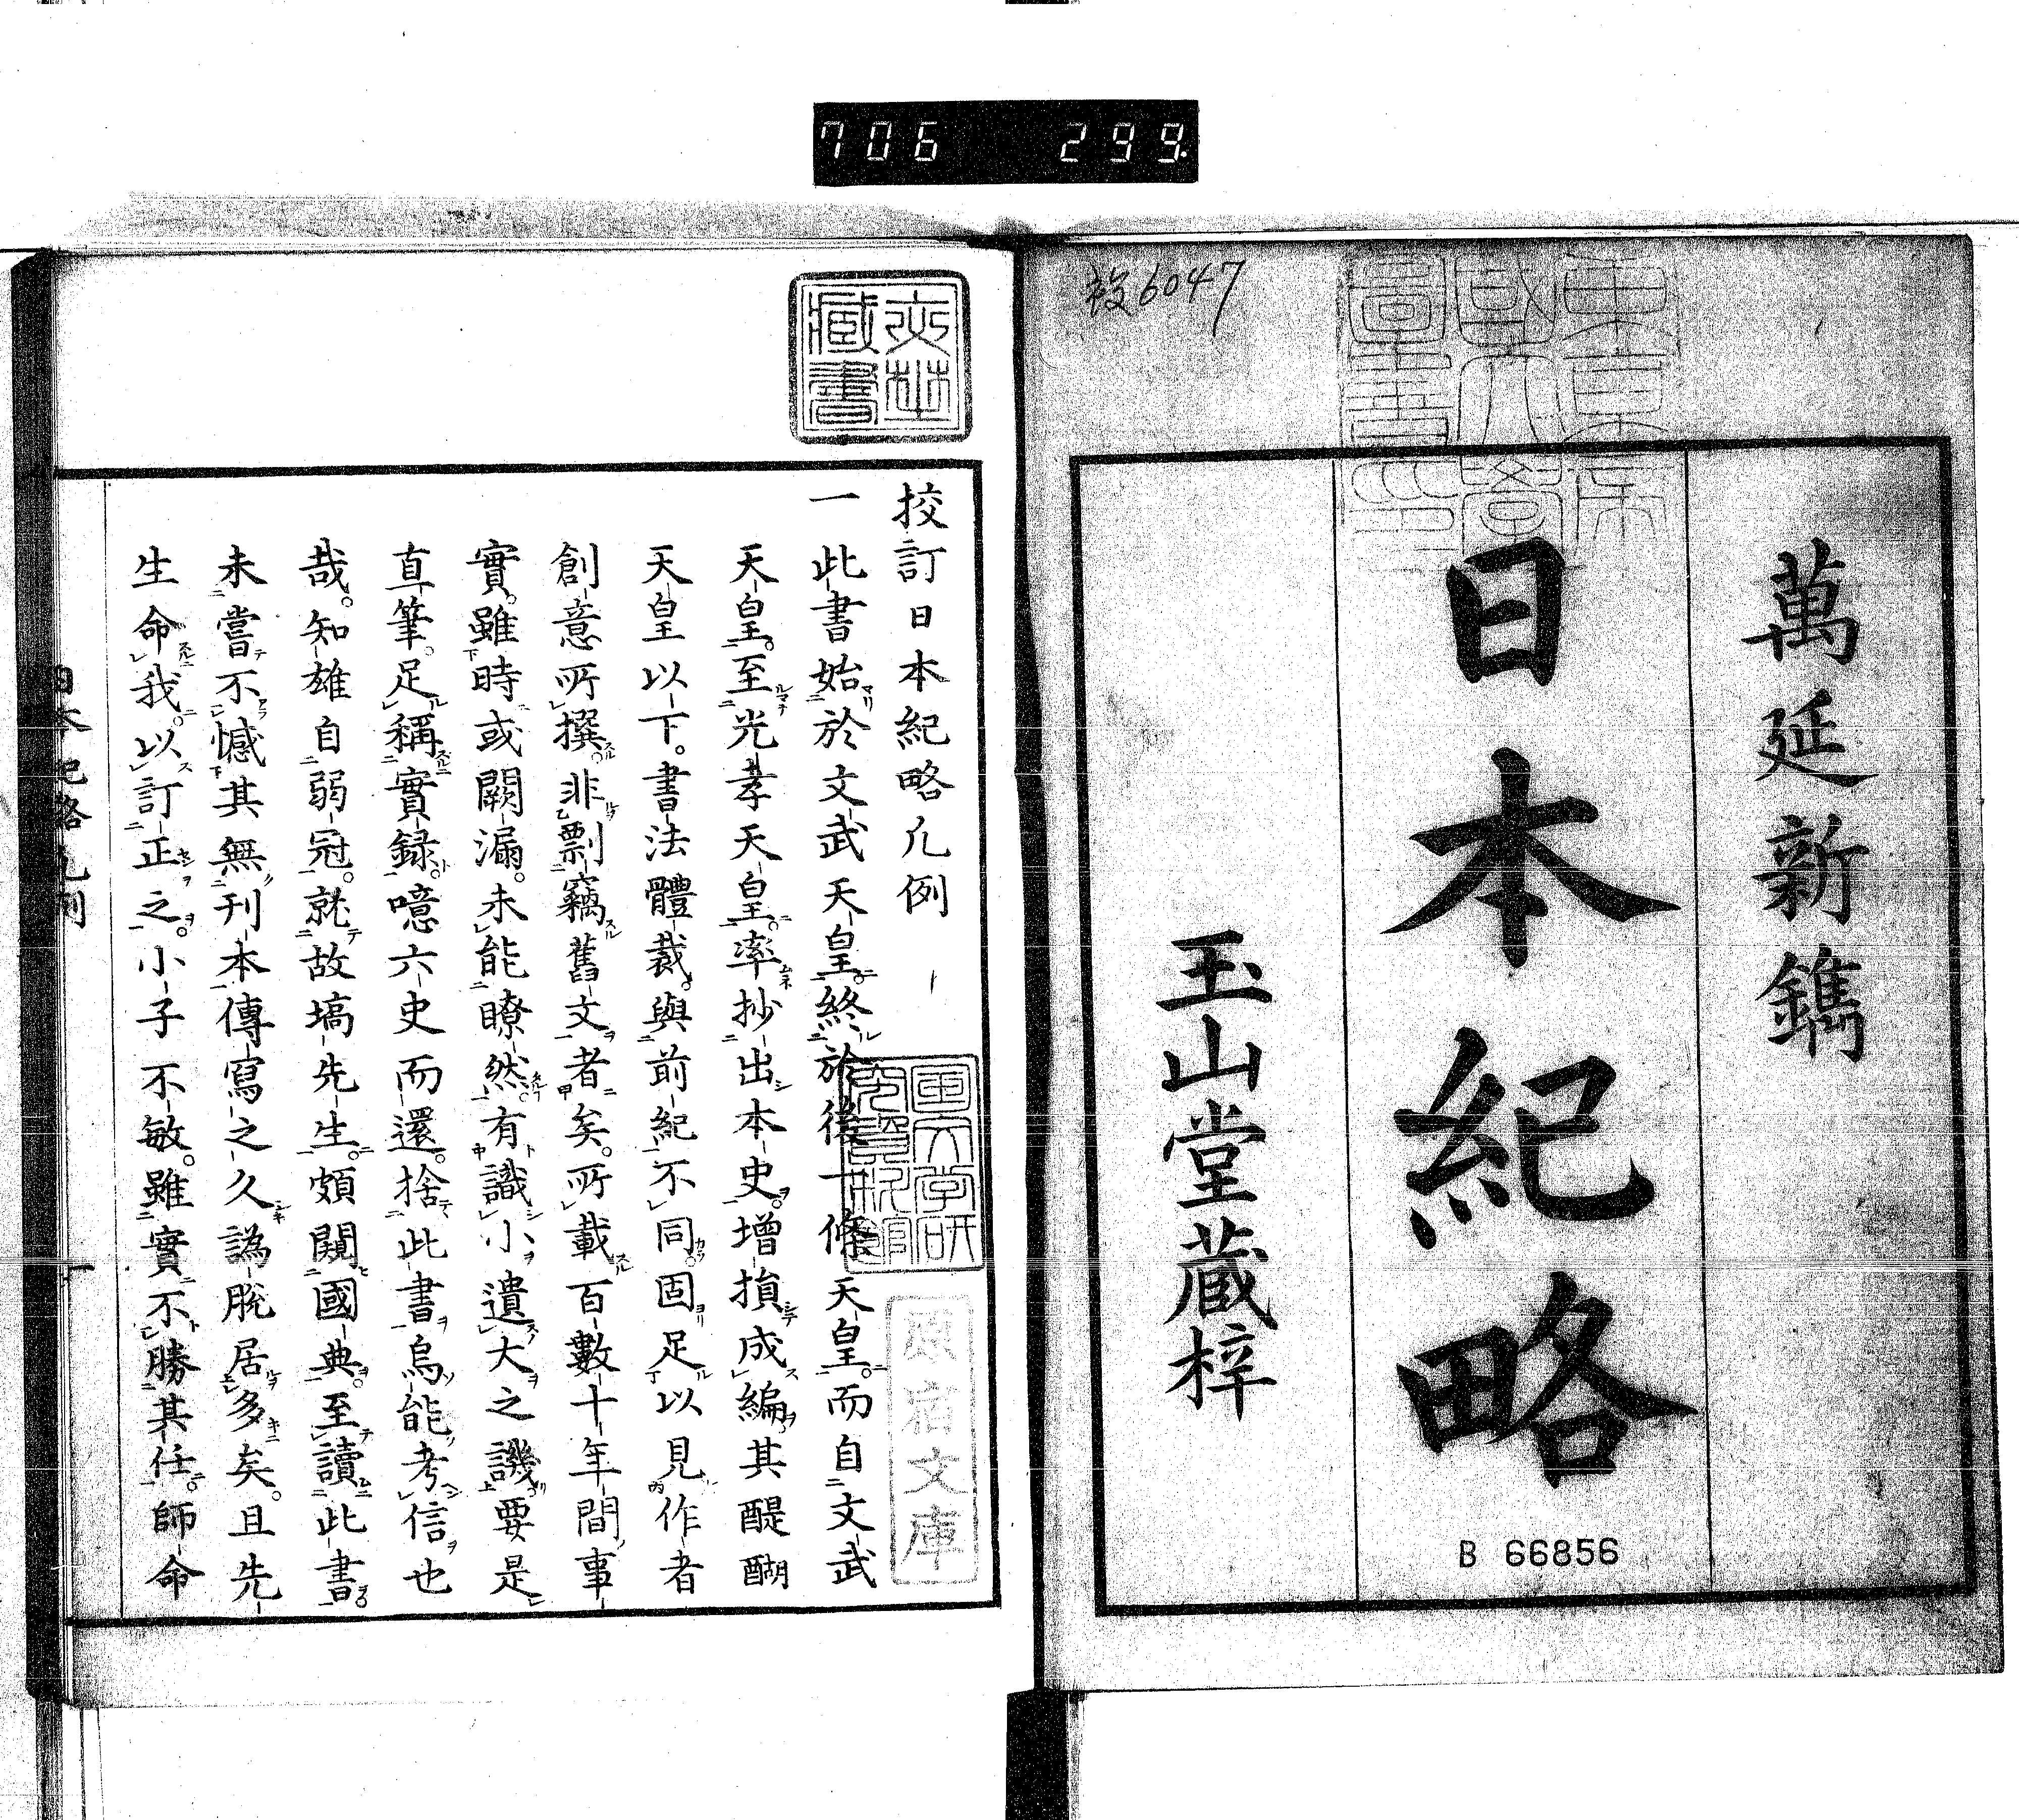 706 299.
設6047
萬延新鐫
日本紀略
玉山堂蔵梓
B 66856
校訂日本紀略凡例
一此書始於文武天皇。終於後一條天皇。而自文武
天皇。至光孝天皇。率抄出本史。增損成編。其醍醐
天皇以下。書法體裁。與前紀不同。固足以見作者
創意所撰。非剽竊舊文者矣。所載百數十年間事
實。雖時或闕漏。未能瞭然。有識小遺大之譏。要是
直筆。足稱實錄。噫六史而還。捨此書。烏能考信也
哉。知雄自弱冠。就故塙先生。頗閱國典。至讀此書。
未嘗不憾其無刊本傳寫之久譌脫居多矣。且先
生命我。以訂正之。小子不敏。雖實不勝其任。師命
日本紀略凡例 一
國文学研究資料館
原宿文庫